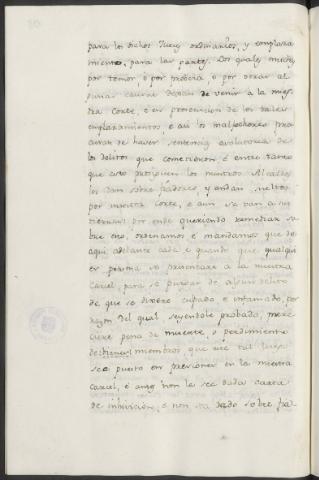 para los dichos Jueces ordinarios, y emplaza
mientos, para las partes. Los quales muchos
por temor, o por pobreza, o por dexar al
gunas causas dejan de venir a la nues
tra Corte, é en prosecucion de los tales
emplazamientos, e asi los malfechores pro
curan de haver sentencia absolutoria de
los delitos que cometieron é entre tanto
que esto prosiguen los nuestros Alcaldes
los dan sobre fiadores, y andan sueltos
por nuestra Corte, e aun se van a sus
tierras: por ende queriendo remediar so
bre eso, ordenamos e mandamos que de
aqui adelante cada e quando que qualqui
er persona se presentare a la nuestra
Carcel, para se purgar de algun delito
de que se dixere culpado, e infamado, por
razon del qual seyendole probado, mere
ciere pena de muerte, o perdimiento
de miembros, que este tal luego
sea puesto en prisiones en la nuestra
Carcel, é antes non le sea dada carta
de inhivicion, e non sea dado sobre fia